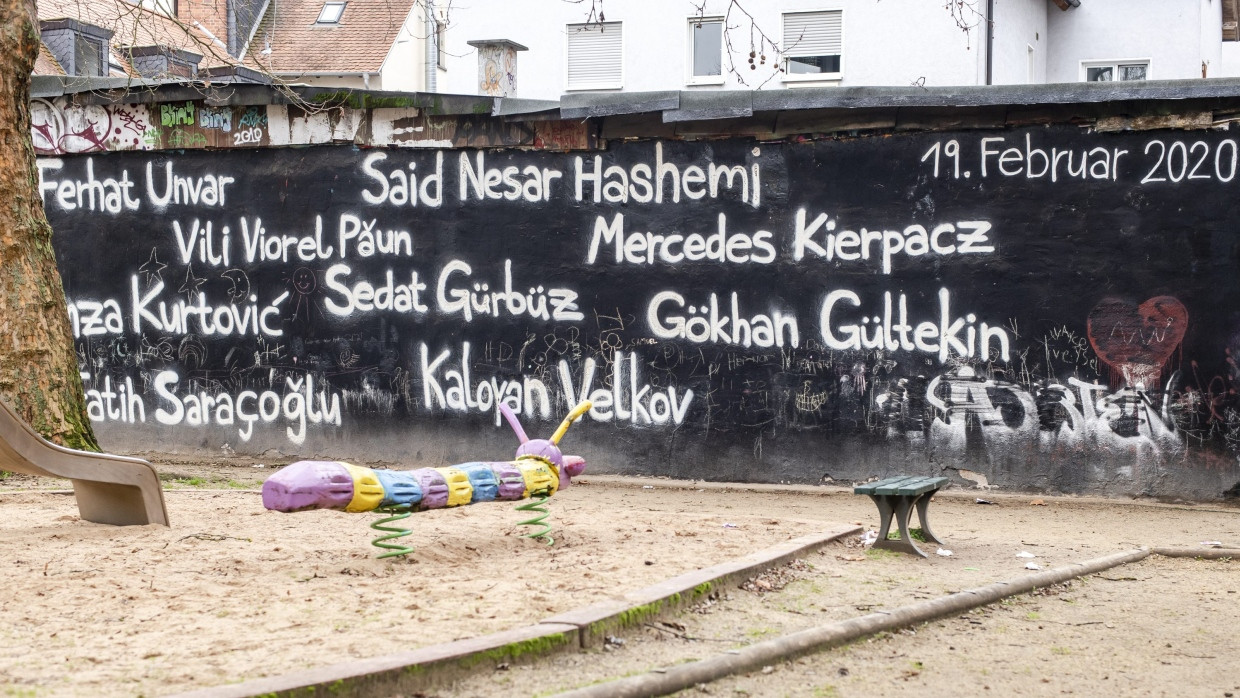 2019
19. Februar 2020
Ferhat Unvar
Said Nesar Hashemi
Vili Viorel Păun
Mercedes Kierpacz
nza Kurtović
Sedat Gürbüz
Gökhan Gültekin
Fatih Saraçoğlu
Kaloyan Velkov